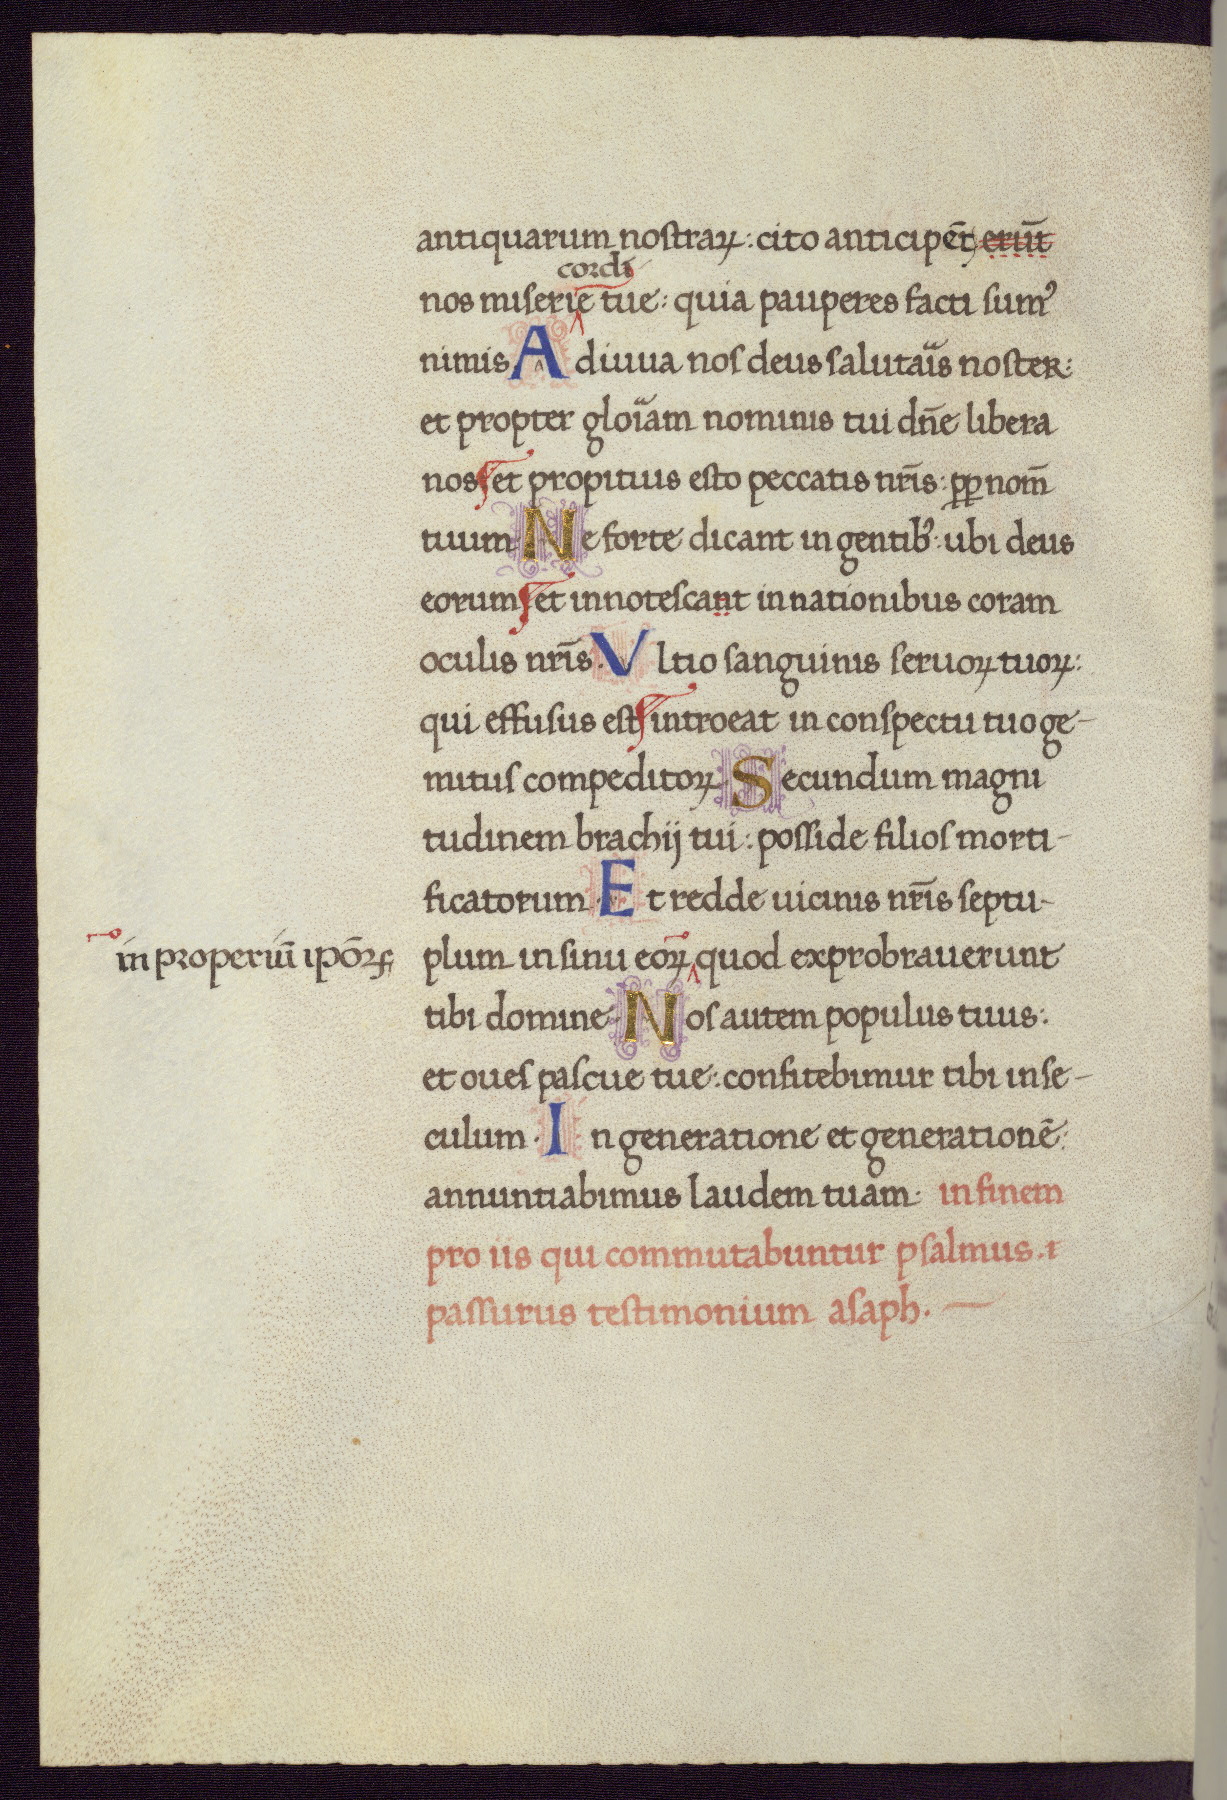 antiquarum nostraꝝ: cito anticipēt eriūt
cordi
nos miserie tue: quia pauperes facti sumꝰ
nimis Adiuua nos deus salutaris noster:
et propter gloriam nominis tui dn̄e libera
nos et propitius esto peccatis nr̄is: ꝓp nom̄
tuum Ne forte dicant in gentibꝰ: ubi deus
eorum et innotescant in nationibus coram
oculis nr̄is. Vltio sanguinis seruoꝝ tuoꝝ:
qui effusus est introeat in conspectu tuo ge-
mitus compeditoꝝ Secundum magni
tudinem brachij tui: posside filios morti-
ficatorum Et redde uicinis nr̄is septu-
in properiū ip̄oꝝ
plum in sinu eoꝝ quod exprobrauerunt
tibi domine Nos autem populus tuus:
et oues pascue tue: confitebimur tibi in se-
culum. In generatione et generationē:
annuntiabimus laudem tuam. in finem
pro iis qui commutabuntur psalmus. ı
passurus testimonium asaph.